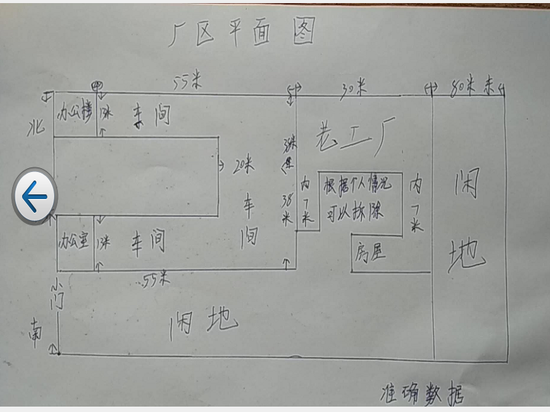 厂区平面图
55米
30米
80米
北
办公楼
13米
车间
老工厂
20米
38米
内7米
根据个人情况
可以拆除
内7米
闲
地
车
间
办公室
13米
车间
房屋
55米
小门
南
闲地
准确数据